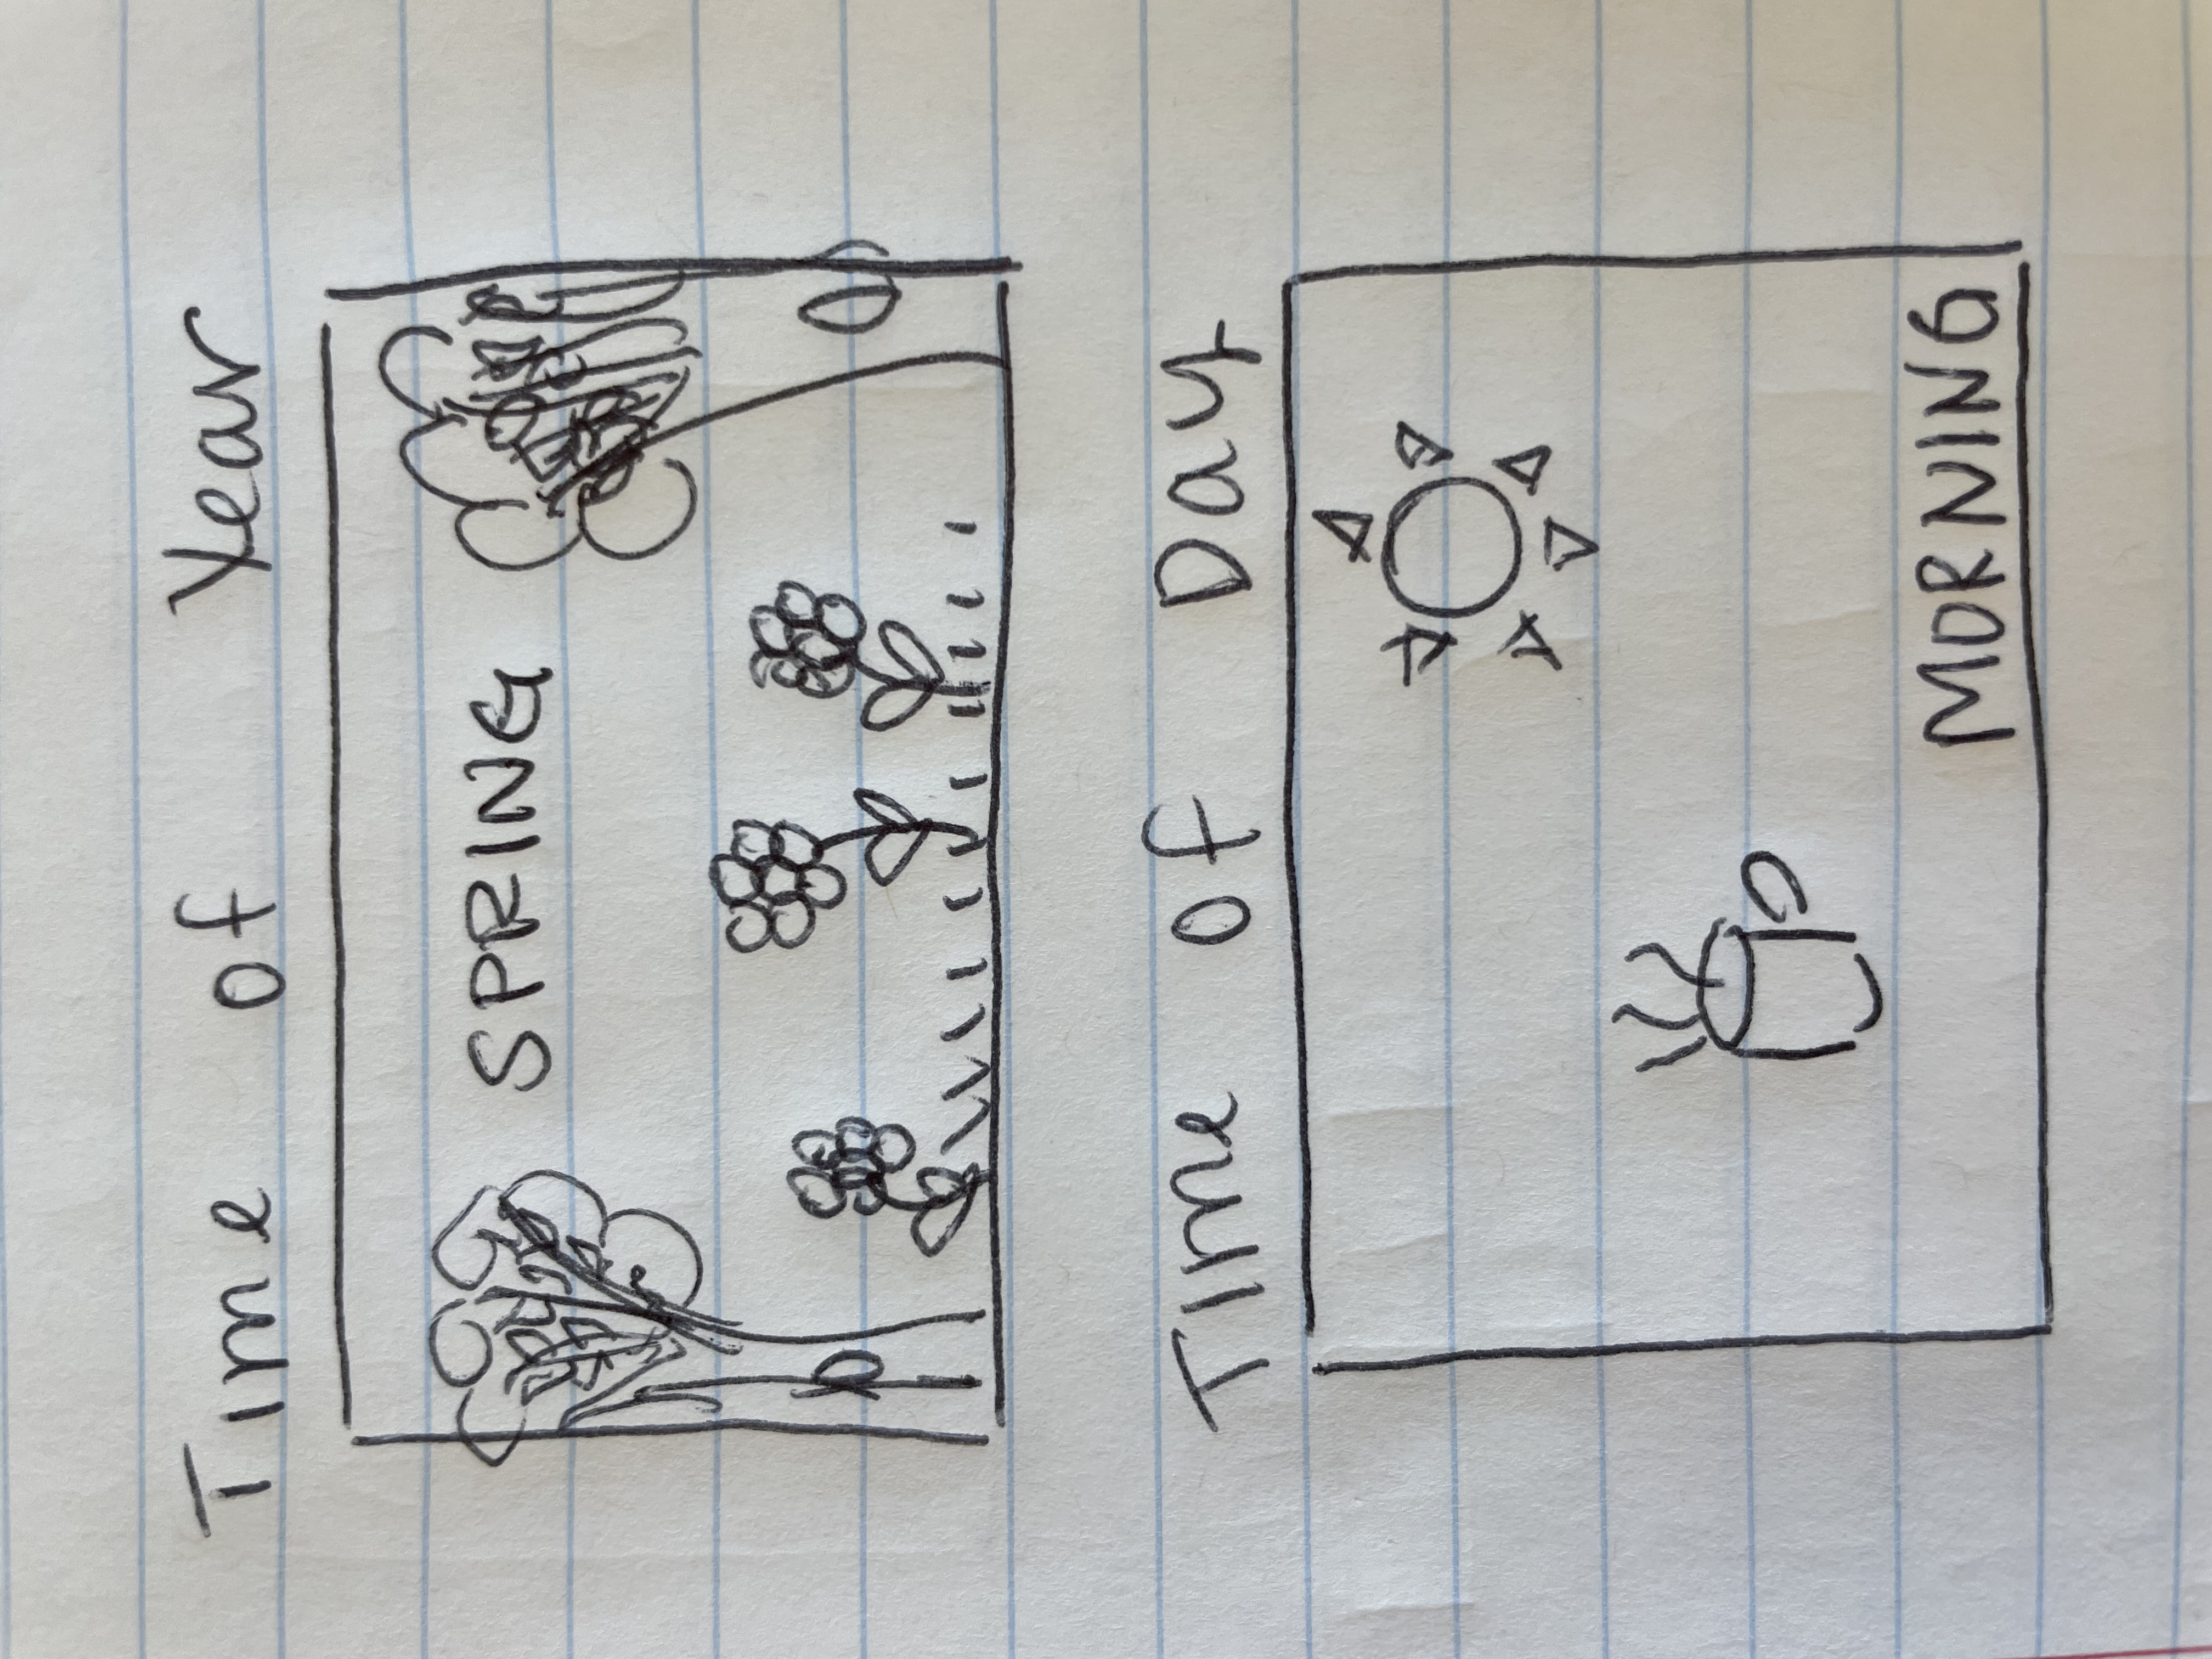 Time of Year
SPRING
Time of Day
MORNING